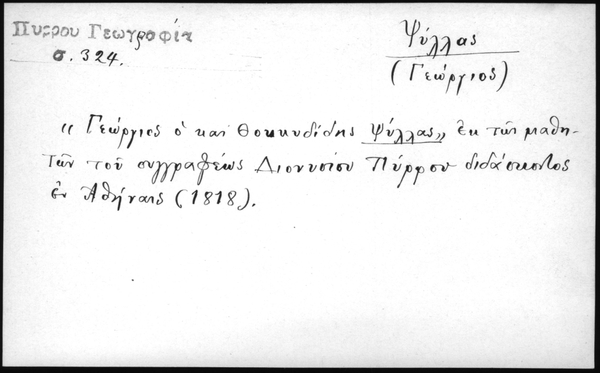 Πυρρου Γεωγραφία
σ. 324.
Ψύλλας
(Γεώργιος)
« Γεώργιος ὁ καί Θουκυδίδης Ψύλλας,, ἐκ τῶν μαθη-
τῶν τοῦ συγγραφέως Διονυσίου Πύρρου διδάσκοντος
ἐν Ἀθήναις (1818).